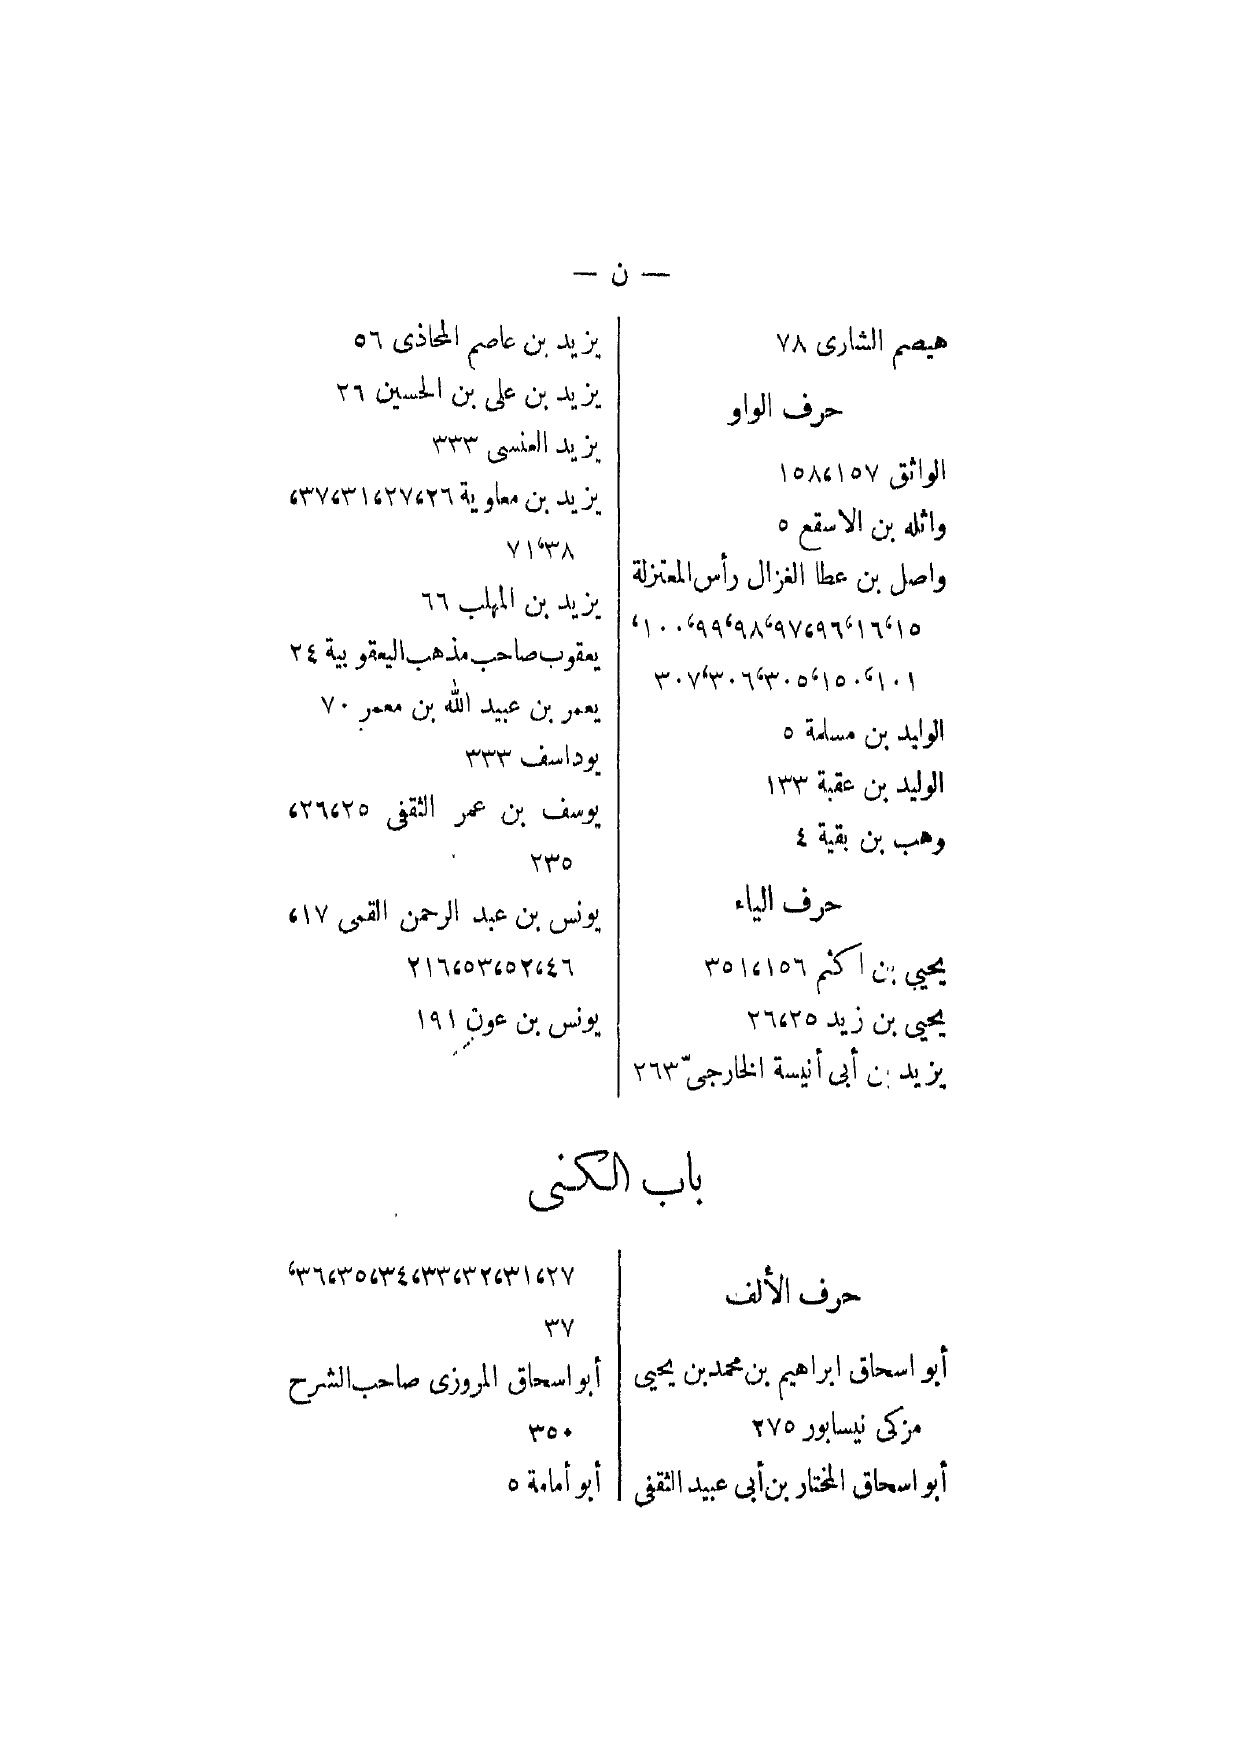 — ن —
هيصم الشارى ٧٨
حرف الواو
الواثق ١٥٧،١٥٨
واثله بن الاسقع ٥
واصل بن عطا الغزال رأس المعتزلة
١٥،١٦،٩٦،٩٧،٩٨،٩٩،١٠٠،
١٠١،١٥٠،٣٠٥،٣٠٦،٣٠٧
الوليد بن مسلمة ٥
الوليد بن عقبة ١٣٣
وهب بن بقية ٤
حرف الياء
يحيي بن اكثم ١٥٦،٣٥١
يحيى بن زيد ٢٥،٢٦
يزيد بن أبى أنيسة الخارجى ٢٦٣
يزيد بن عاصم المحاذى ٥٦
يزيد بن على بن الحسين ٢٦
يزيد العنسى ٣٣٣
يزيد بن معاوية ٢٦،٢٧،٣١،٣٧،
٣٨،٧١
يزيد بن المهلب ٦٦
يعقوب صاحب مذهب اليعقوبية ٢٤
يعمر بن عبيد الله بن معمر ٧٠
يوداسف ٣٣٣
يوسف بن عمر الثقفى ٢٥،٢٦،
٢٣٥
يونس بن عبد الرحمن القمى ١٧،
٤٦،٥٢،٥٣،٢١٦
يونس بن عون ١٩١
باب الكنى
حرف الألف
أبو اسحاق ابراهيم بن محمد بن يحيى
مزكى نيسابور ٢٧٥
أبو اسحاق المختار بن أبى عبيد الثقفى
٢٧،٣١،٣٢،٣٣،٣٤،٣٥،٣٦،
٣٧
أبو اسحاق المروزى صاحب الشرح
٣٥٠
أبو أمامة ٥